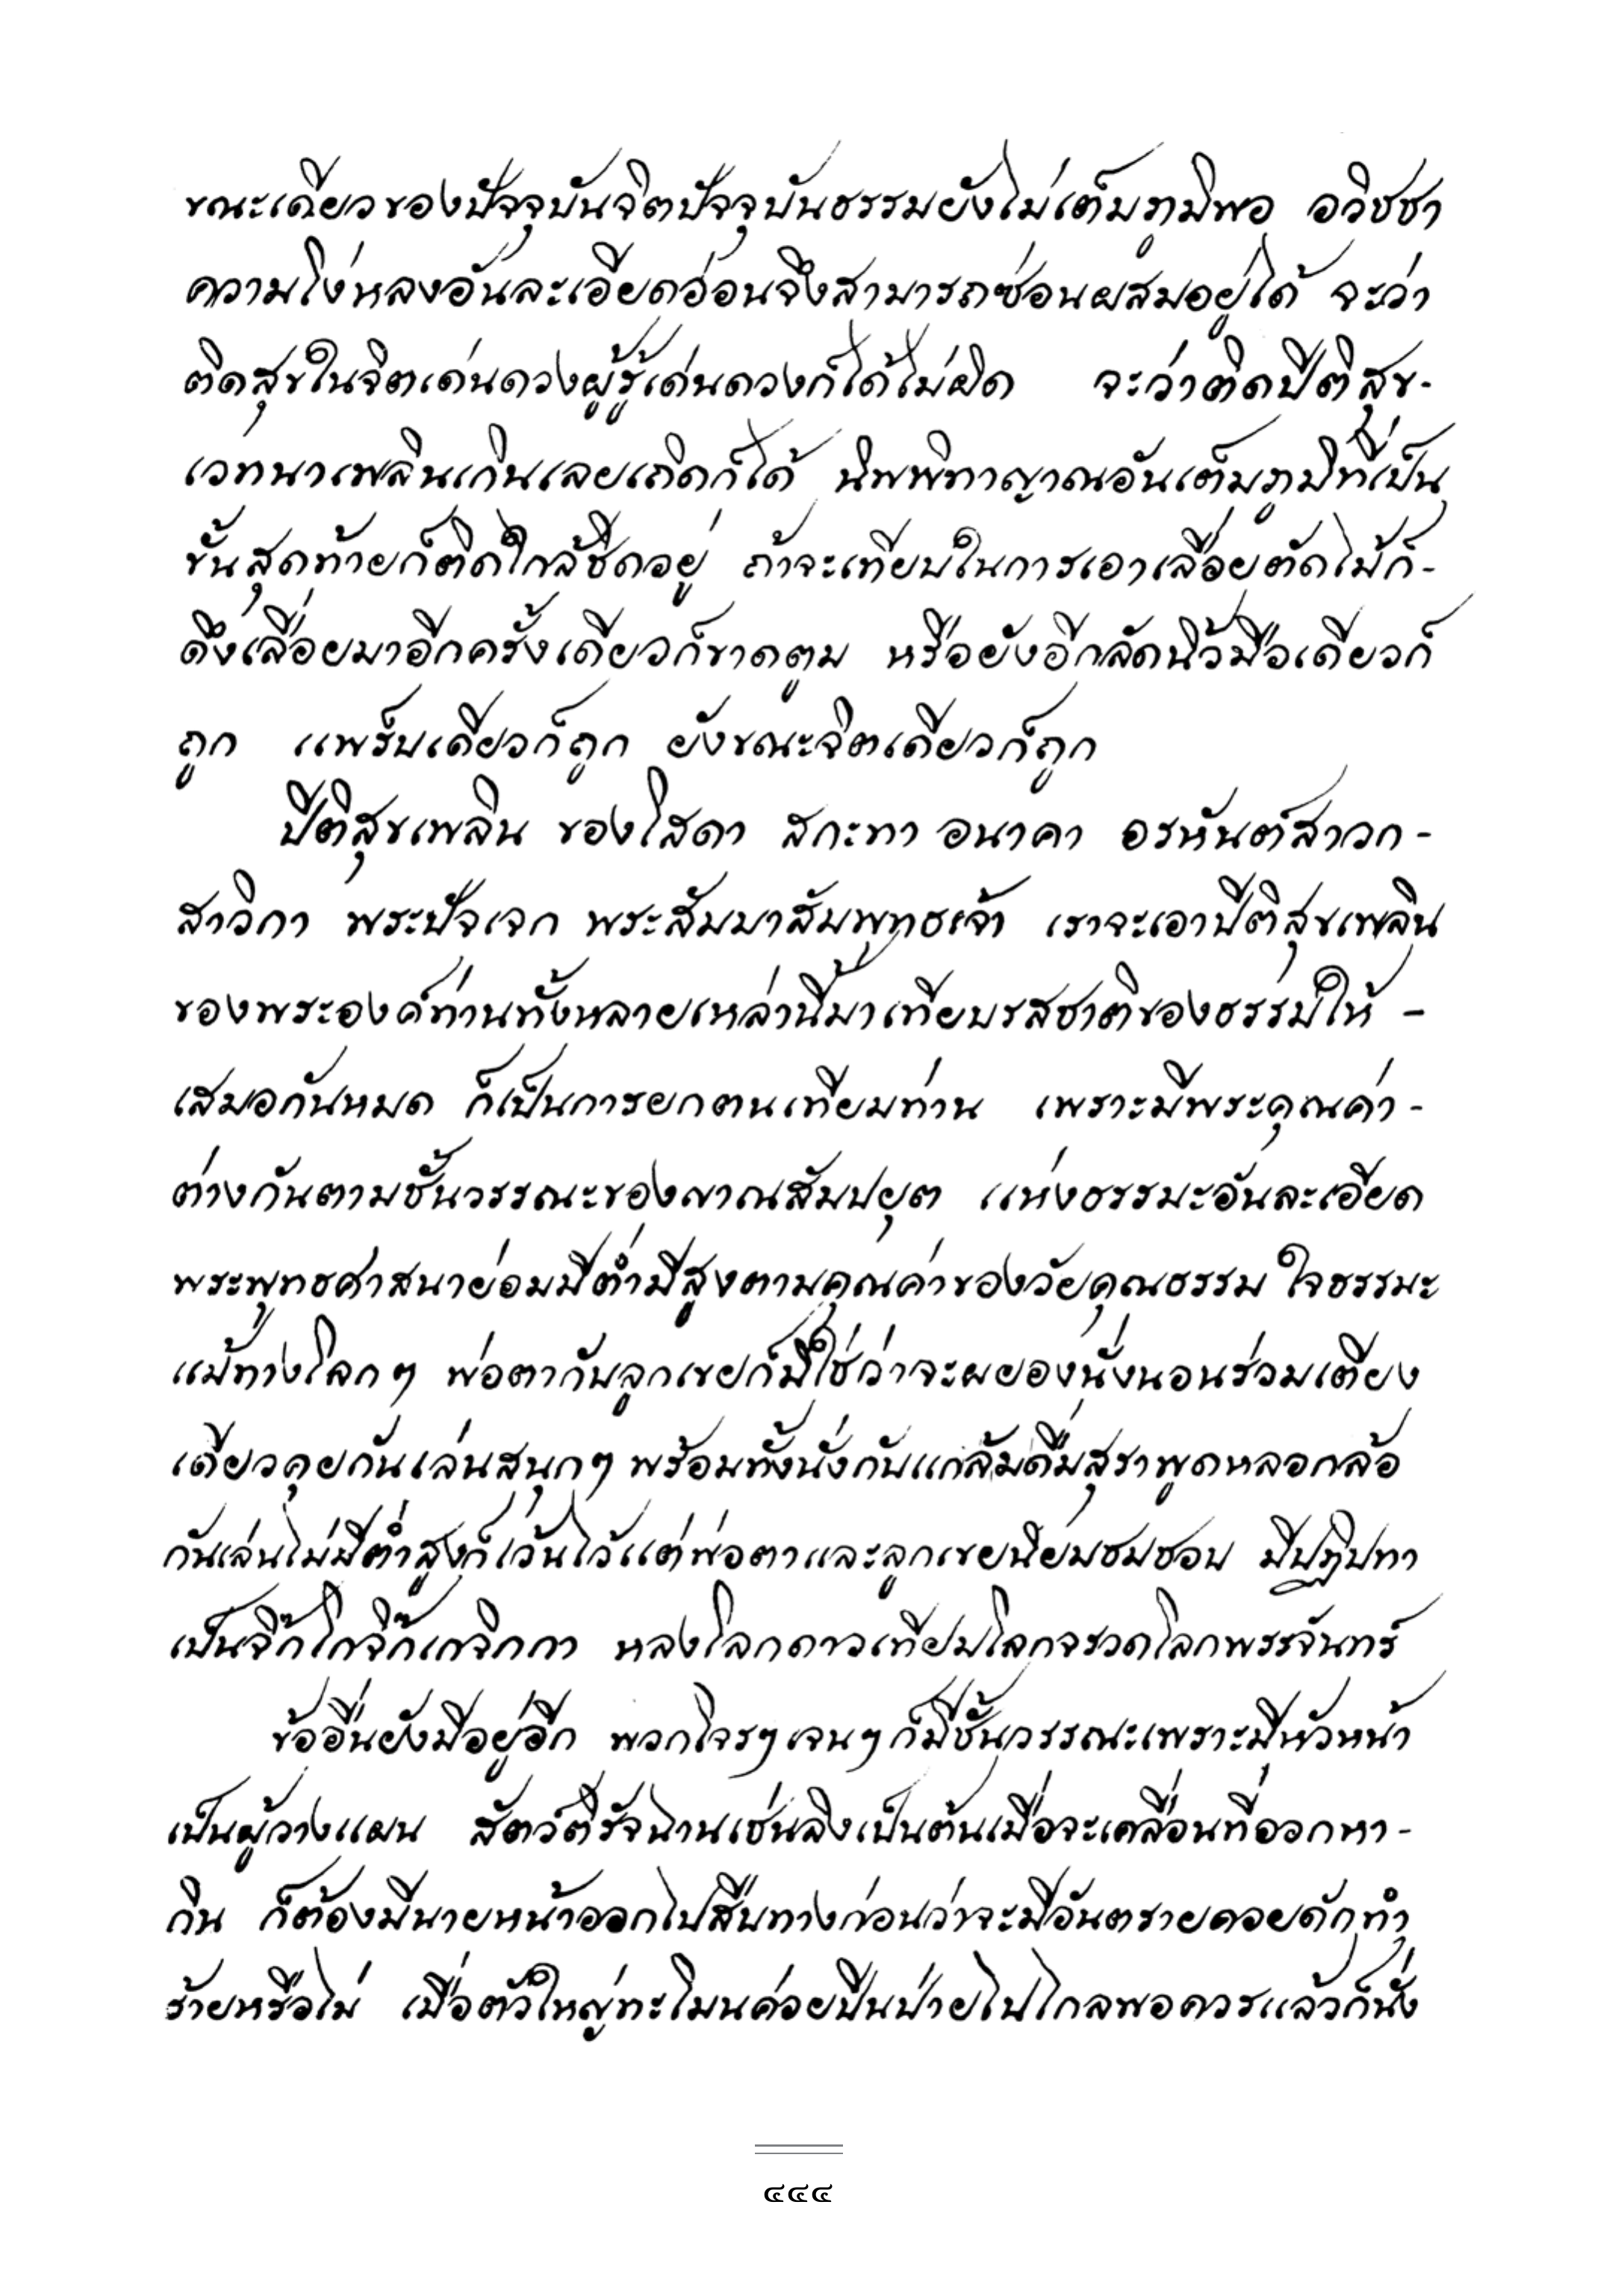 ขณะเดียวของปัจจุบันจิตปัจจุบันธรรมยังไม่เต็มภูมิพอ อวิชชา
ความโง่หลงอันละเอียดอ่อนจึงสามารถซ่อนผสมอยู่ได้ จะว่า
ติดสุขในจิตเด่นดวงผู้รู้เด่นดวงก็ได้ไม่ผิด จะว่าติดปีติสุข-
เวทนาเพลินเกินเลยเถิดก็ได้ นิพพิทาญาณอันเต็มภูมิที่เป็น
ขั้นสุดท้ายก็ติดใกล้ชิดอยู่ ถ้าจะเทียบในการเอาเลื่อยตัดไม้ก็-
ดึงเลื่อยมาอีกครั้งเดียวก็ขาดตูม หรือยังอีกลัดนิ้วมือเดียวก็
ถูก แพร็บเดียวก็ถูก ยังขณะจิตเดียวก็ถูก
ปีติสุขเพลิน ของโสดา สกะทา อนาคา อรหันต์สาวก-
สาวิกา พระปัจเจก พระสัมมาสัมพุทธเจ้า เราจะเอาปีติสุขเพลิน
ของพระองค์ท่านทั้งหลายเหล่านี้มาเทียบรสชาติของธรรมให้ -
เสมอกันหมด ก็เป็นการยกตนเทียมท่าน เพราะมีพระคุณค่า-
ต่างกันตามชั้นวรรณะของญาณสัมปยุต แห่งธรรมะอันละเอียด
พระพุทธศาสนาย่อมมีต่ำมีสูงตามคุณค่าของวัยคุณธรรม ใจธรรมะ
แม้ทางโลกๆ พ่อตากับลูกเขยก็มิใช่ว่าจะผยองนั่งนอนร่วมเตียง
เดียวคุยกันเล่นสนุกๆ พร้อมทั้งนั่งกับแกล้มดื่มสุราพูดหลอกล้อ
กันเล่นไม่มีต่ำสูงก็เว้นไว้แต่พ่อตาและลูกเขยนิยมชมชอบ มีปฏิปทา
เป็นจิ๊กโกจิ๊กเกจิกกา หลงโลกดาวเทียมโลกจรวดโลกพรรจันทร์
ข้ออื่นยังมีอยู่อีก พวกโจรๆ เจนๆ ก็มีชั้นวรรณะเพราะมีหัวหน้า
เป็นผู้วางแผน สัตว์ดิรัจฉานเช่นลิงเป็นต้นเมื่อจะเคลื่อนที่ออกหา-
กิน ก็ต้องมีนายหน้าออกไปสืบทางก่อนว่าจะมีอันตรายคอยดักทำ
ร้ายหรือไม่ เมื่อตัวใหญ่ทะโมนค่อยปีนป่ายไปไกลพอควรแล้วก็นั่ง
๔๔๔